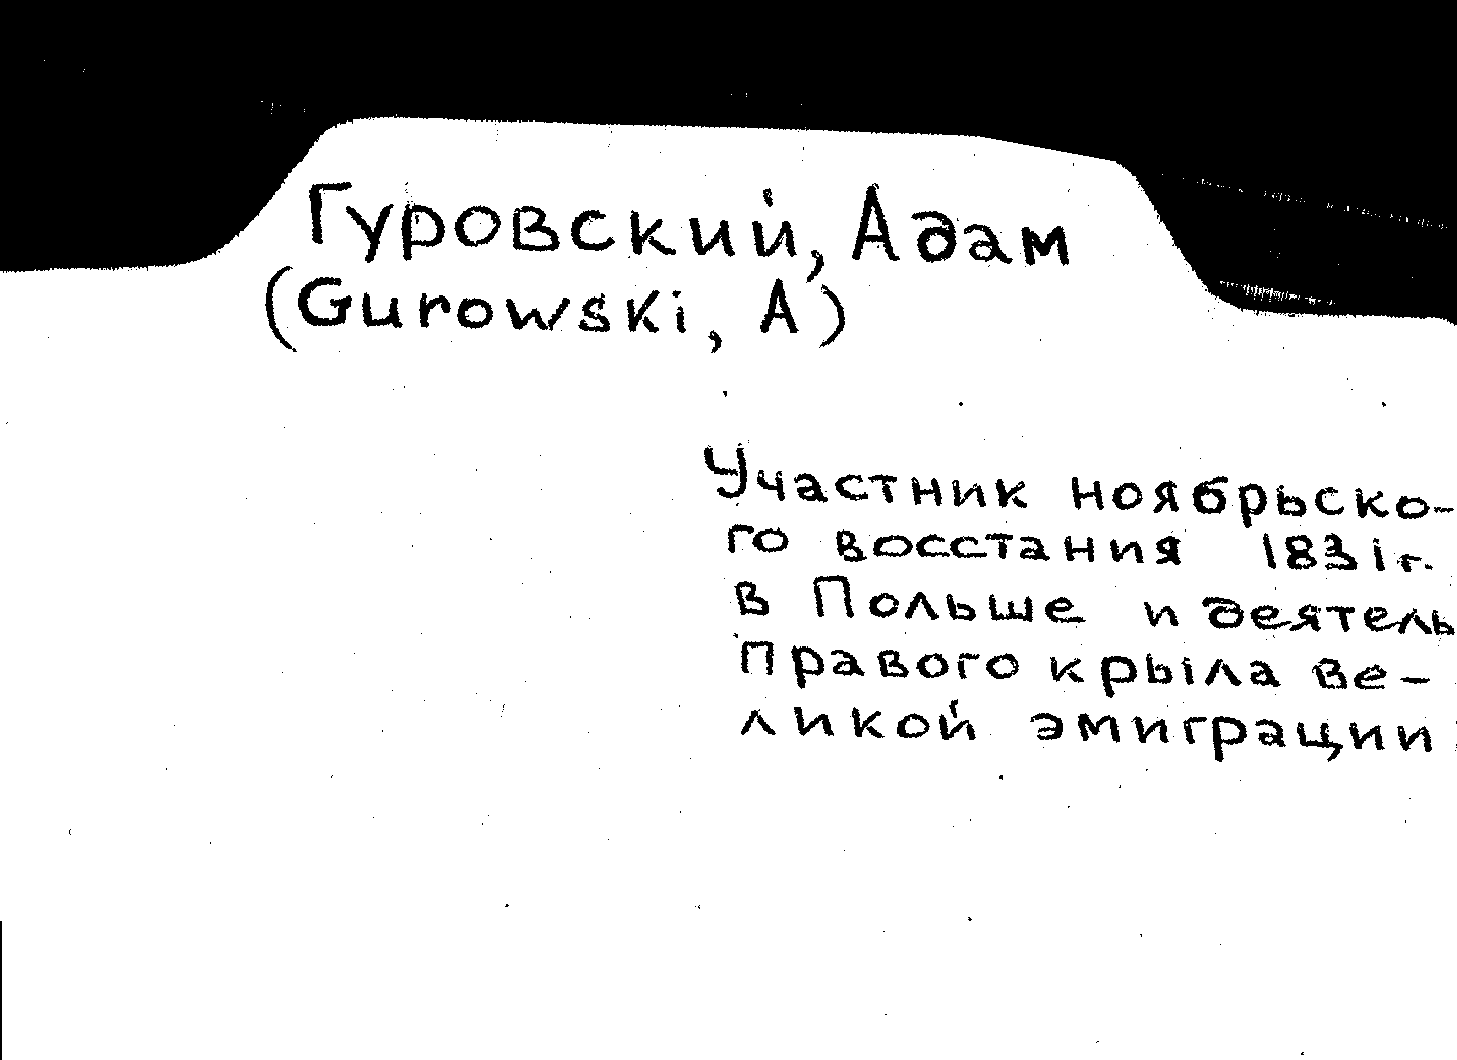 Гуровский, Адам
(Gurowski, A)
Участник ноябрьско-
го восстания 1831г.
в Польше и деятель
правого крыла ве-
ликой эмиграции